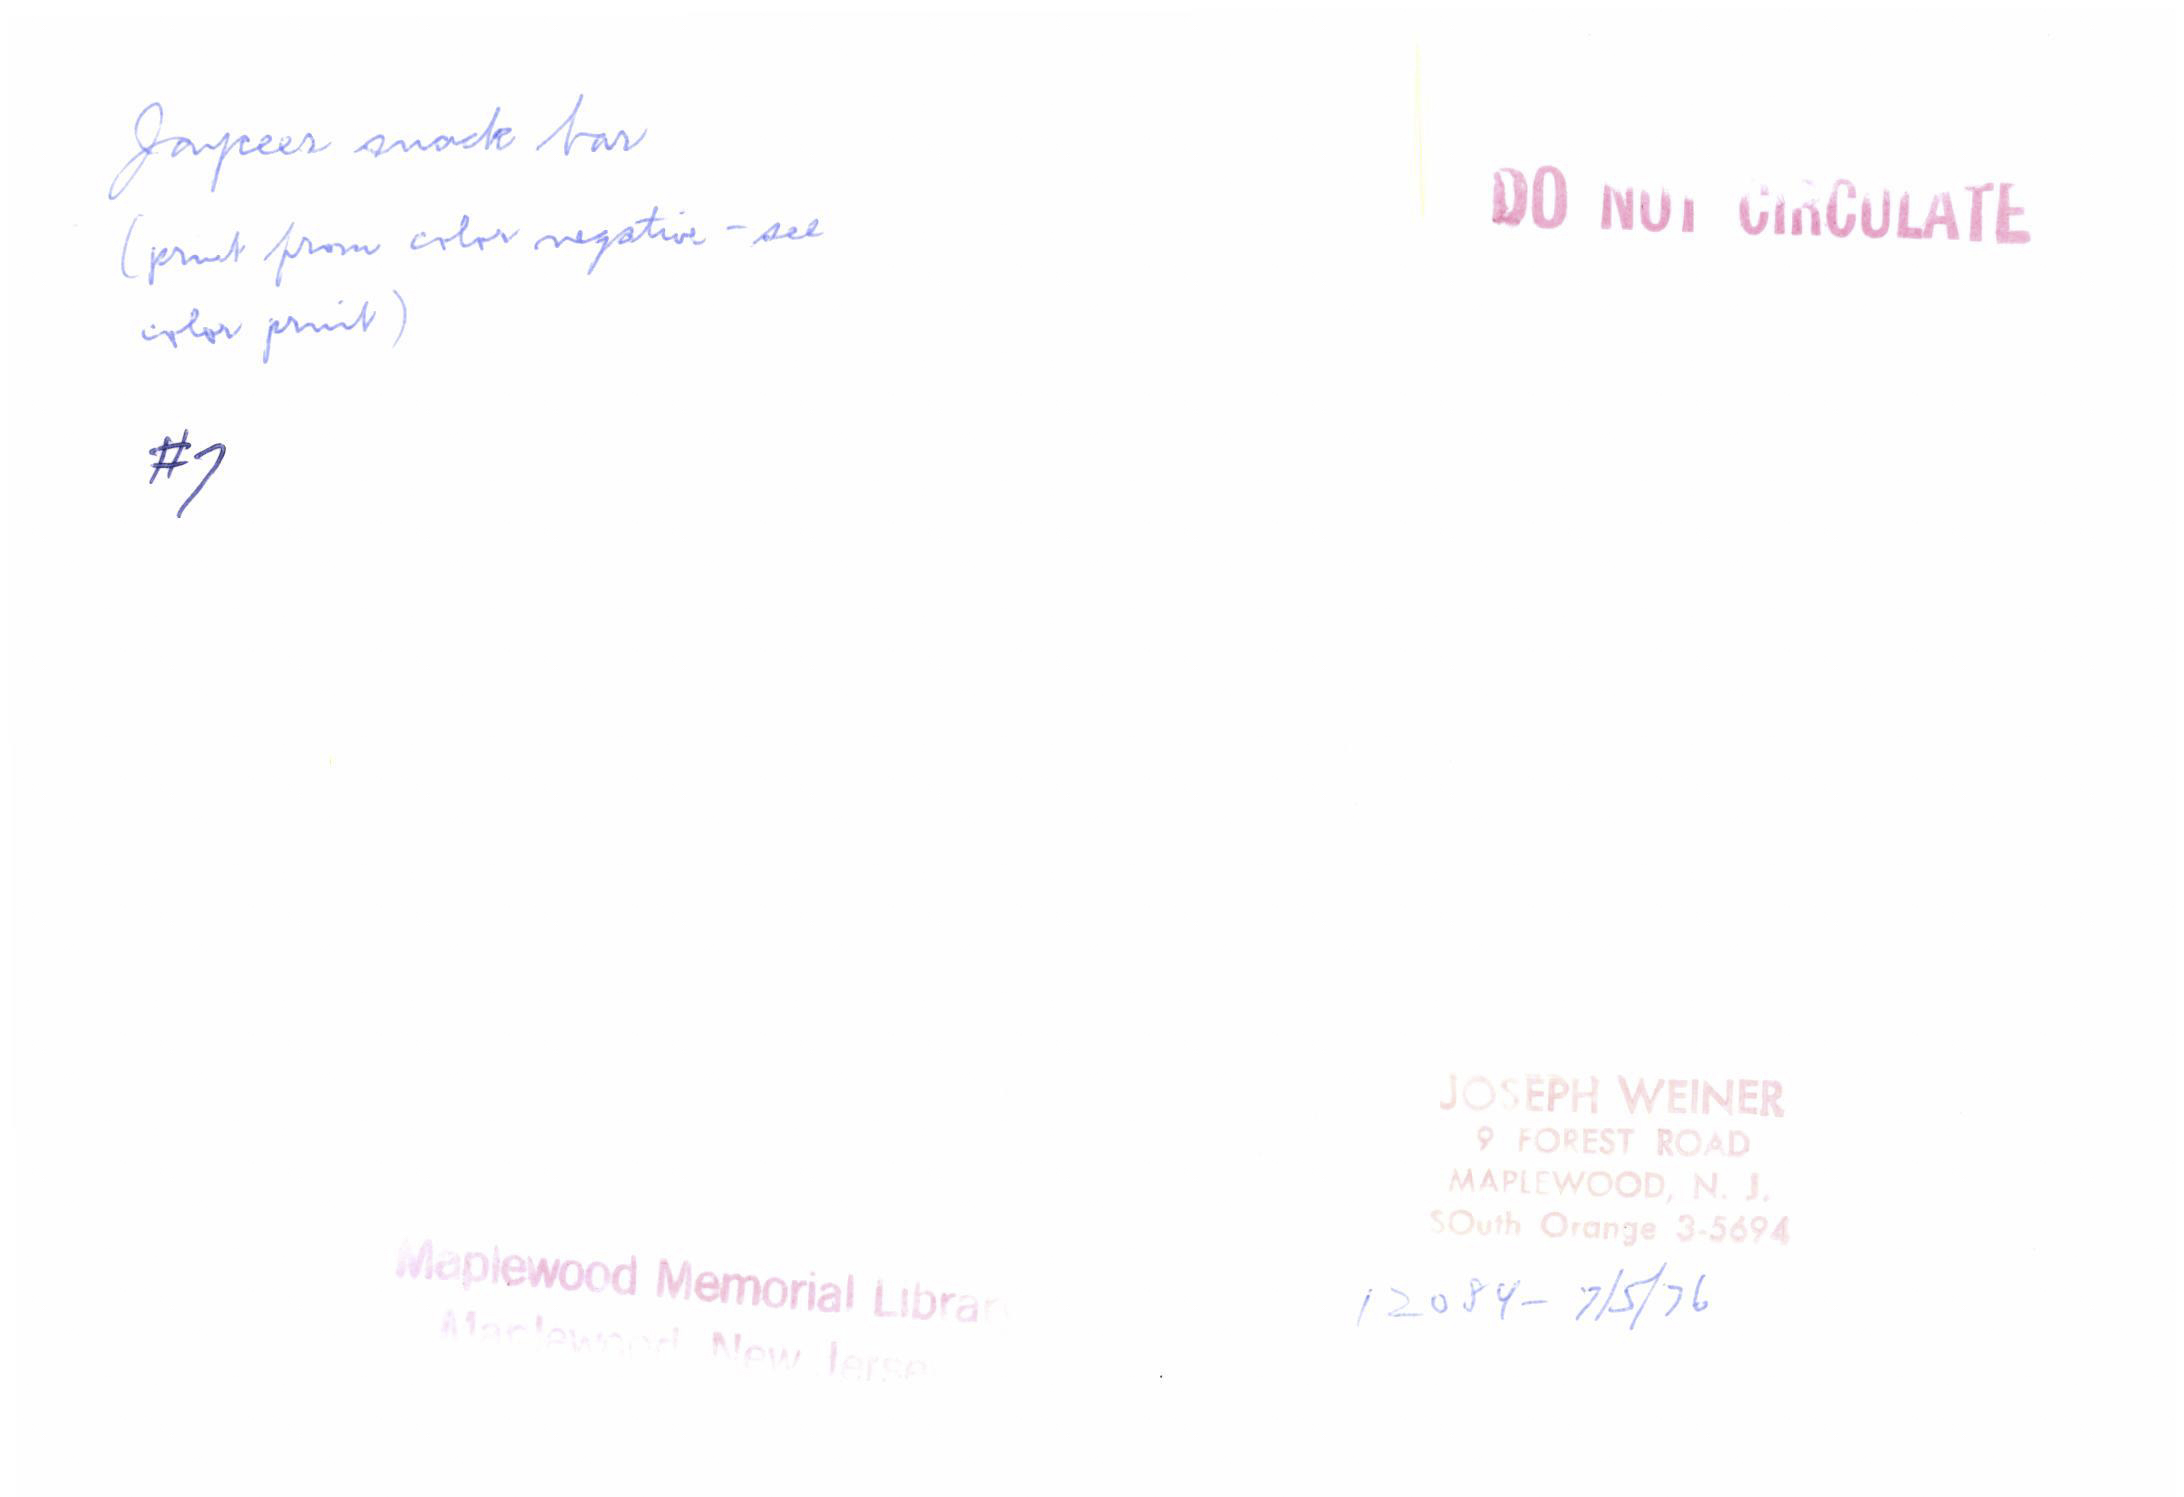 Jaycees snack bar
(print from color negative - see
color print)
#7
DO NOT CIRCULATE
JOSEPH WEINER
9 FOREST ROAD
MAPLEWOOD, N. J.
SOuth Orange 3-5694
12084- 7/5/76
Maplewood Memorial Library
Maplewood, New Jersey